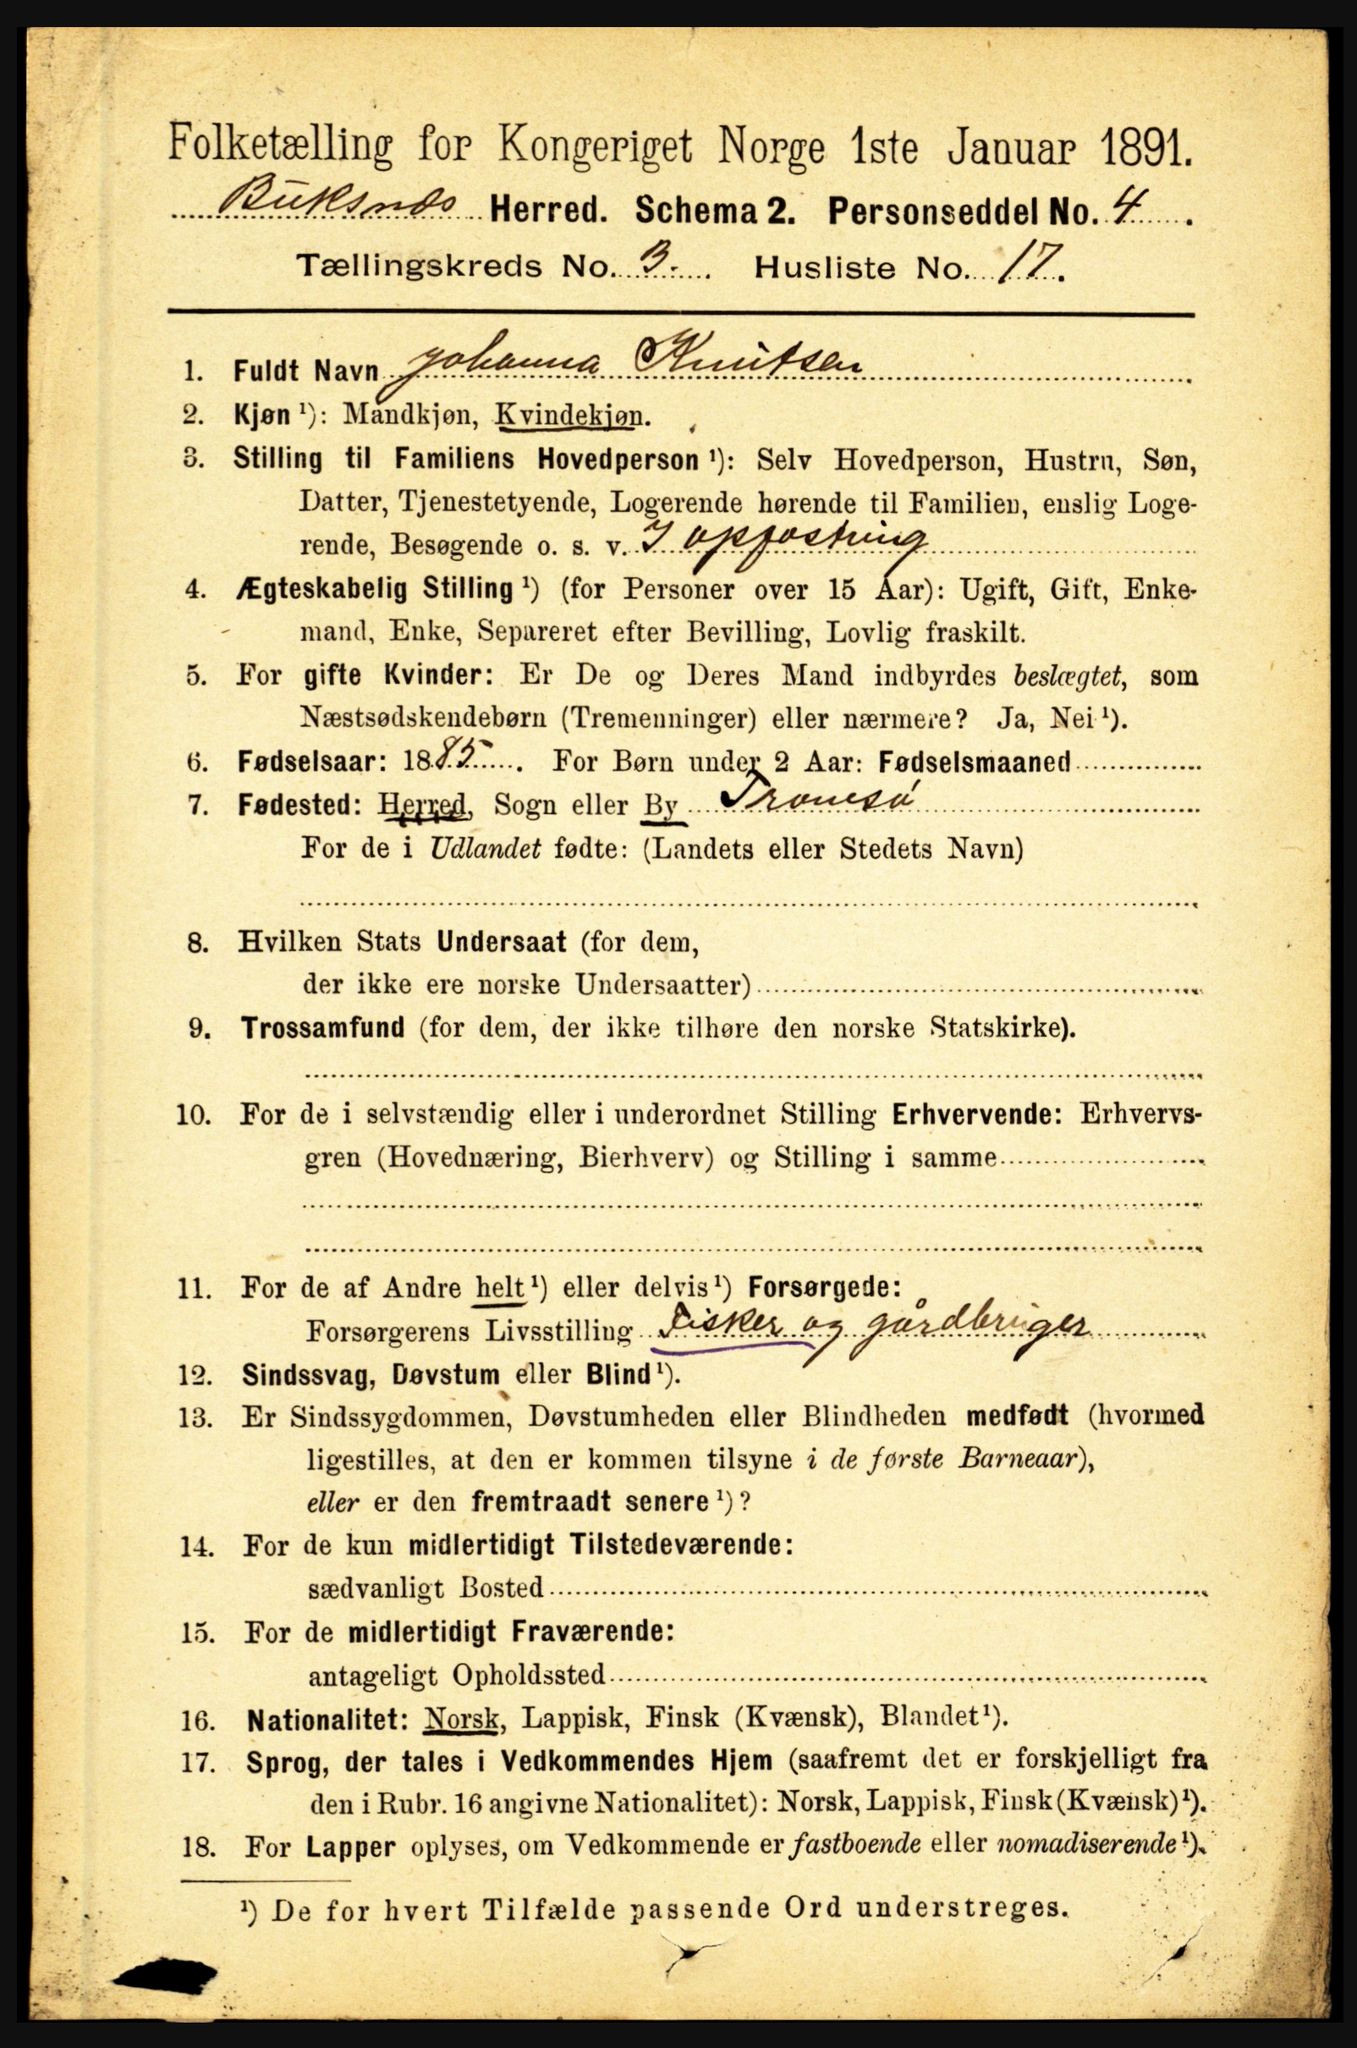 Folketælling for Kongeriget Norge 1ste Januar 1891.
Buksnæs Herred. Schema 2. Personseddel No. 4.
Tællingskreds No. 3. Husliste No. 17.
1. Fuldt Navn Johanna Knutsen
2. Kjøn ¹): Mandkjøn, Kvindekjøn.
3. Stilling til Familiens Hovedperson ¹): Selv Hovedperson, Hustru, Søn,
Datter, Tjenestetyende, Logerende hørende til Familien, enslig Loge-
rende, Besøgende o. s. v. I opfostring
4. Ægteskabelig Stilling ¹) (for Personer over 15 Aar): Ugift, Gift, Enke-
mand, Enke, Separeret efter Bevilling, Lovlig fraskilt.
5. For gifte Kvinder: Er De og Deres Mand indbyrdes beslægtet, som
Næstsødskendebørn (Tremenninger) eller nærmere? Ja, Nei ¹).
6. Fødselsaar: 1885. For Børn under 2 Aar: Fødselsmaaned
7. Fødested: Herred, Sogn eller By Tromsø
For de i Udlandet fødte: (Landets eller Stedets Navn)
8. Hvilken Stats Undersaat (for dem,
der ikke ere norske Undersaatter)
9. Trossamfund (for dem, der ikke tilhøre den norske Statskirke).
10. For de i selvstændig eller i underordnet Stilling Erhvervende: Erhvervs-
gren (Hovednæring, Bierhverv) og Stilling i samme
11. For de af Andre helt ¹) eller delvis ¹) Forsørgede:
Forsørgerens Livsstilling Fisker og gårdbruger
12. Sindssvag, Døvstum eller Blind ¹).
13. Er Sindssygdommen, Døvstumheden eller Blindheden medfødt (hvormed
ligestilles, at den er kommen tilsyne i de første Barneaar),
eller er den fremtraadt senere ¹)?
14. For de kun midlertidigt Tilstedeværende:
sædvanligt Bosted
15. For de midlertidigt Fraværende:
antageligt Opholdssted
16. Nationalitet: Norsk, Lappisk, Finsk (Kvænsk), Blandet ¹).
17. Sprog, der tales i Vedkommendes Hjem (saafremt det er forskjelligt fra
den i Rubr. 16 angivne Nationalitet): Norsk, Lappisk, Finsk (Kvænsk) ¹).
18. For Lapper oplyses, om Vedkommende er fastboende eller nomadiserende ¹).
¹) De for hvert Tilfælde passende Ord understreges.